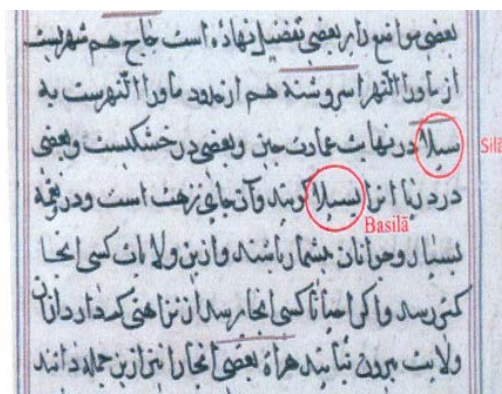 بعضی مواضع را بر بعضی تفضیل نهاده است جاج هم شهریست
از ماورا النهر اسروشنه هم از حدود ماورا النهرست به
سیلا در نهایت عمارت چین و بعضی در خشکیست و بعضی Silā
در دریا انرا بسیلا کویند وآن جای نزهت است ودر نغمه
Basilā
بسیار وحوانان بیشمار باشند وازین ولایات کسی انجا
کمتر رسد واکر احیانا کسی انجا رسد از نزاهتی که دارد ازان
ولایت بیرون نیاید همراه بعضی انجا را نیز ازین جمله دانند